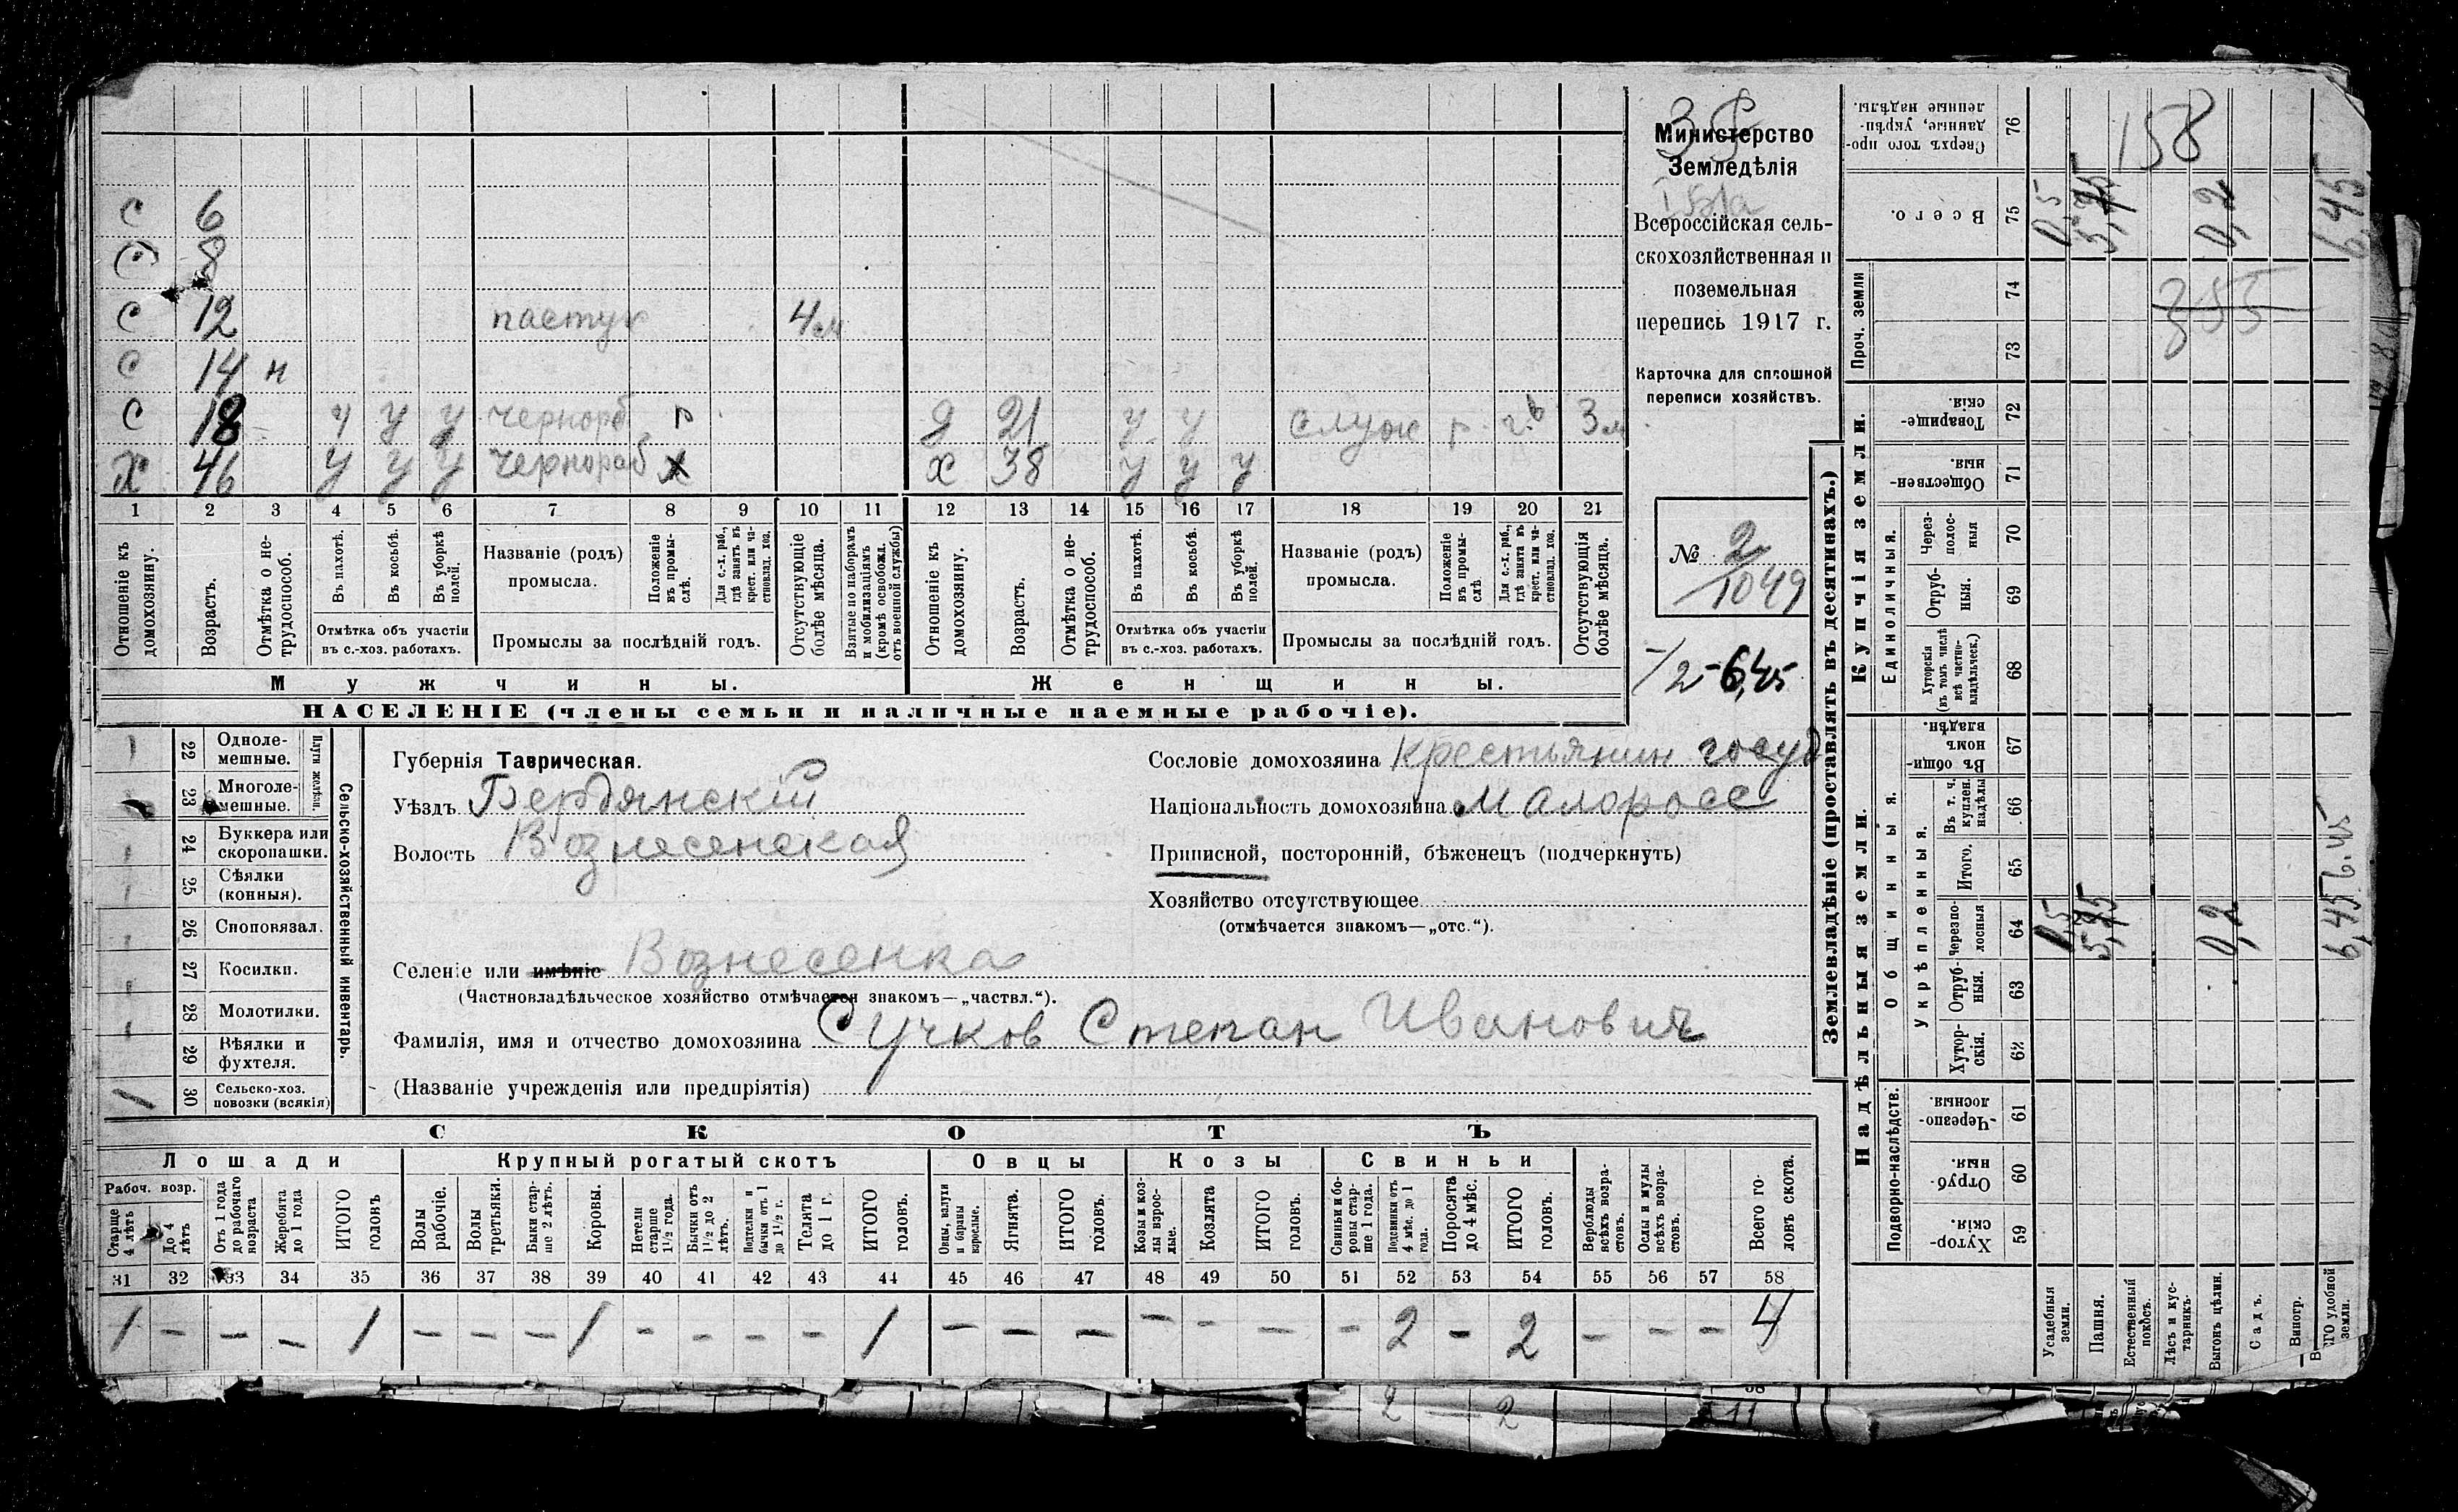 С 6
С 8
С 12 пастух 4 м
С 14 н
С 18 у у у чернораб. р Д 21 у у служ р. 3 м
Х 46 у у у чернораб Х 38 у у у
1 2 3 4 5 6 7 8 9 10 11 12 13 14 15 16 17 18 19 20 21
Отношеніе къ домохозяину.
Возрастъ.
Отмѣтка о не-трудоспособ.
Въ пахотѣ.
Въ косьбѣ.
Въ уборкѣ полей.
Отмѣтка объ участіи
въ с.-хоз. работахъ.
Названіе (родъ)
промысла.
Положеніе въ промы-слѣ.
Для с.-х. раб., гдѣ занятъ въ крест. или ча-стновлад. хоз.
Промыслы за послѣдній годъ.
Отсутствующіе болѣе мѣсяца.
Взятые по наборамъ и мобилизаціямъ (кромѣ освобожд. отъ военной службы)
Отношеніе къ домохозяину.
Возрастъ.
Отмѣтка о не-трудоспособ.
Въ пахотѣ.
Въ косьбѣ.
Въ уборкѣ полей.
Отмѣтка объ участіи
въ с.-хоз. работахъ.
Названіе (родъ)
промысла.
Положеніе въ промы-слѣ
Для с.-х. раб., гдѣ занята въ крест. или ча-стновлад. хоз.
Промыслы за послѣдній годъ.
Отсутствующія болѣе мѣсяца.
Мужчины. Женщины.
НАСЕЛЕНІЕ (члены семьи и наличные наемные рабочіе).
Министерство
Земледѣлія
Всероссійская сель-
скохозяйственная и
поземельная
перепись 1917 г.
Карточка для сплошной
переписи хозяйствъ.
№ 2
1049
/2 - 6,45
Сельско-хозяйственный инвентарь.
Плуги желѣзн.
22 Одноле-
мешные.
23 Многоле-
мешные.
24 Буккера или
скоропашки.
25 Сѣялки
(конныя).
26 Сноповязал.
27 Косилки.
28 Молотилки.
29 Вѣялки и
фухтеля.
1 30 Сельско-хоз.
повозки (всякія)
Губернія Таврическая.
Уѣздъ Бердянскій
Волость Вознесенская
Селеніе или имѣніе Вознесенка
(Частновладѣльческое хозяйство отмѣчается знакомъ—„частвл.“).
Фамилія, имя и отчество домохозяина Сучков Степан Иванович
(Названіе учрежденія или предпріятія)
Сословіе домохозяина Крестьянин госуд
Національность домохозяина Малоросс
Приписной, посторонній, бѣженецъ (подчеркнуть)
Хозяйство отсутствующее
(отмѣчается знакомъ—„отс.“).
СКОТЪ
Лошади Крупный рогатый скотъ Овцы Козы Свиньи
Рабоч. возр.
Старше 4 лѣтъ
До 4 лѣтъ
Отъ 1 года до рабочаго возраста
Жеребята до 1 года
ИТОГО головъ
Волы рабочіе.
Волы третьяки.
Быки стар-ше 2 лѣтъ.
Коровы.
Нетели старше 1 1/2 года.
Бычки отъ 1 1/2 до 2 лѣтъ.
Подтелки и бычки отъ 1 до 1 1/2 г.
Телята до 1 г.
ИТОГО головъ.
Овцы, валухи и бараны взрослые.
Ягнята.
ИТОГО головъ.
Козы и коз-лы взрос-лые.
Козлята
ИТОГО головъ.
Свиньи и бо-ровы стар-ше 1 года.
Подсвинки отъ 4 мѣс. до 1 года.
Поросята до 4 мѣс.
ИТОГО головъ.
Верблюды всѣхъ возра-стовъ.
Ослы и мулы всѣхъ возра-стовъ.
Всего го-ловъ скота.
31 32 33 34 35 36 37 38 39 40 41 42 43 44 45 46 47 48 49 50 51 52 53 54 55 56 57 58
1 – – – 1 – – – 1 – – – – 1 – – – – – – – 2 – 2 – – – 4
Землевладѣніе (проставлять въ десятинахъ.)
Надѣльныя земли. Купчія земли.
Проч. земли
Подворно-наслѣдств.
Общинныя.
Укрѣпленныя.
Единоличныя.
76 Сверхъ того про-данные, укрѣп-ленные надѣлы.
75 Всего.
74
73
72 Товарище-скія.
71 Обществен-ныя.
70 Через-полос-ныя
69 Отруб-ныя.
68 Хуторскія (въ томъ числѣ всѣ частно-владѣльческ.)
67 Въ общи-номъ владѣн.
66 Въ т. ч. куплен. надѣлы
65 Итого.
64 Черезпо-лосныя
63 Отруб-ныя.
62 Хутор-скія.
61 Черезпо-лосныя.
60 Отруб-ныя.
59 Хутор-скія.
Усадебныя земли.
Пашня.
Естественный покосъ.
Лѣсъ и кус-тарникъ.
Выгонъ цѣлин.
Садъ.
Виногр.
158
355
0,5 5,75 0,2 6,45
0,5 5,75 0,2 6,45 6.45
2 – 2
11